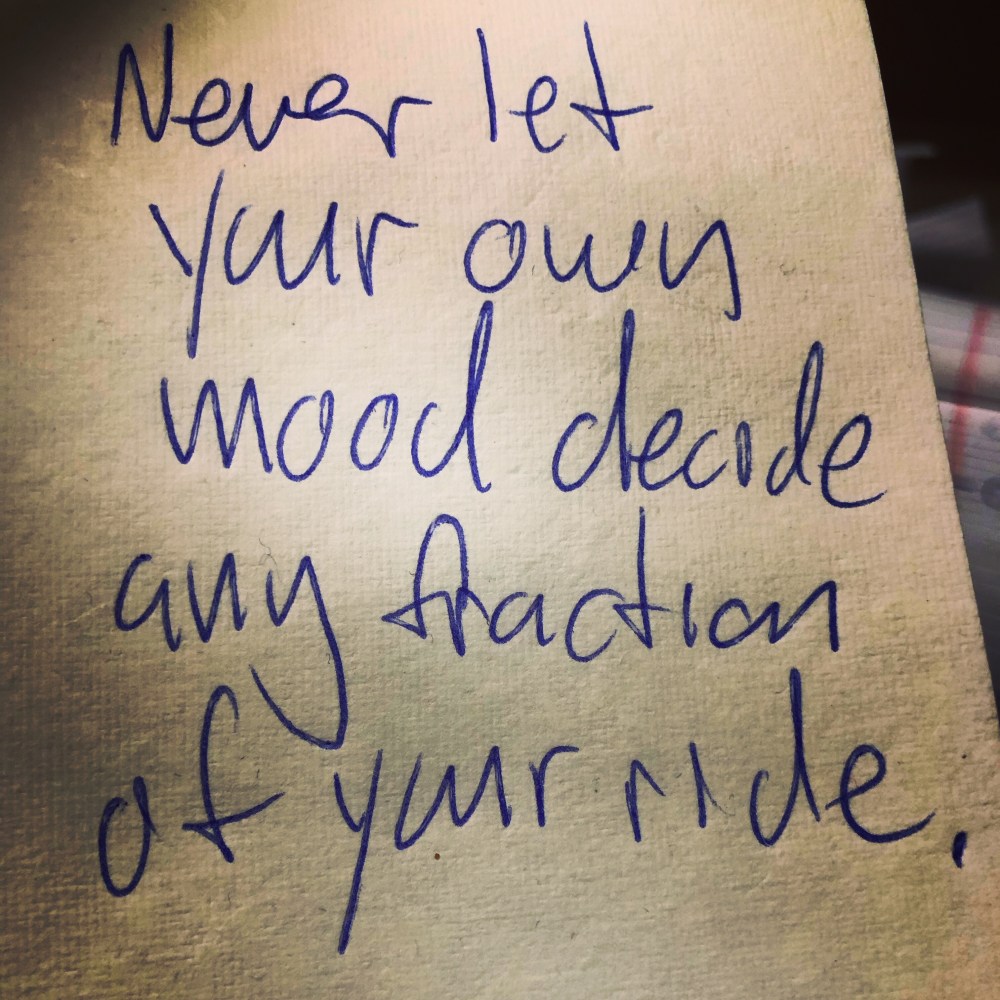 Never let
your own
mood decide
any fraction
of your ride.